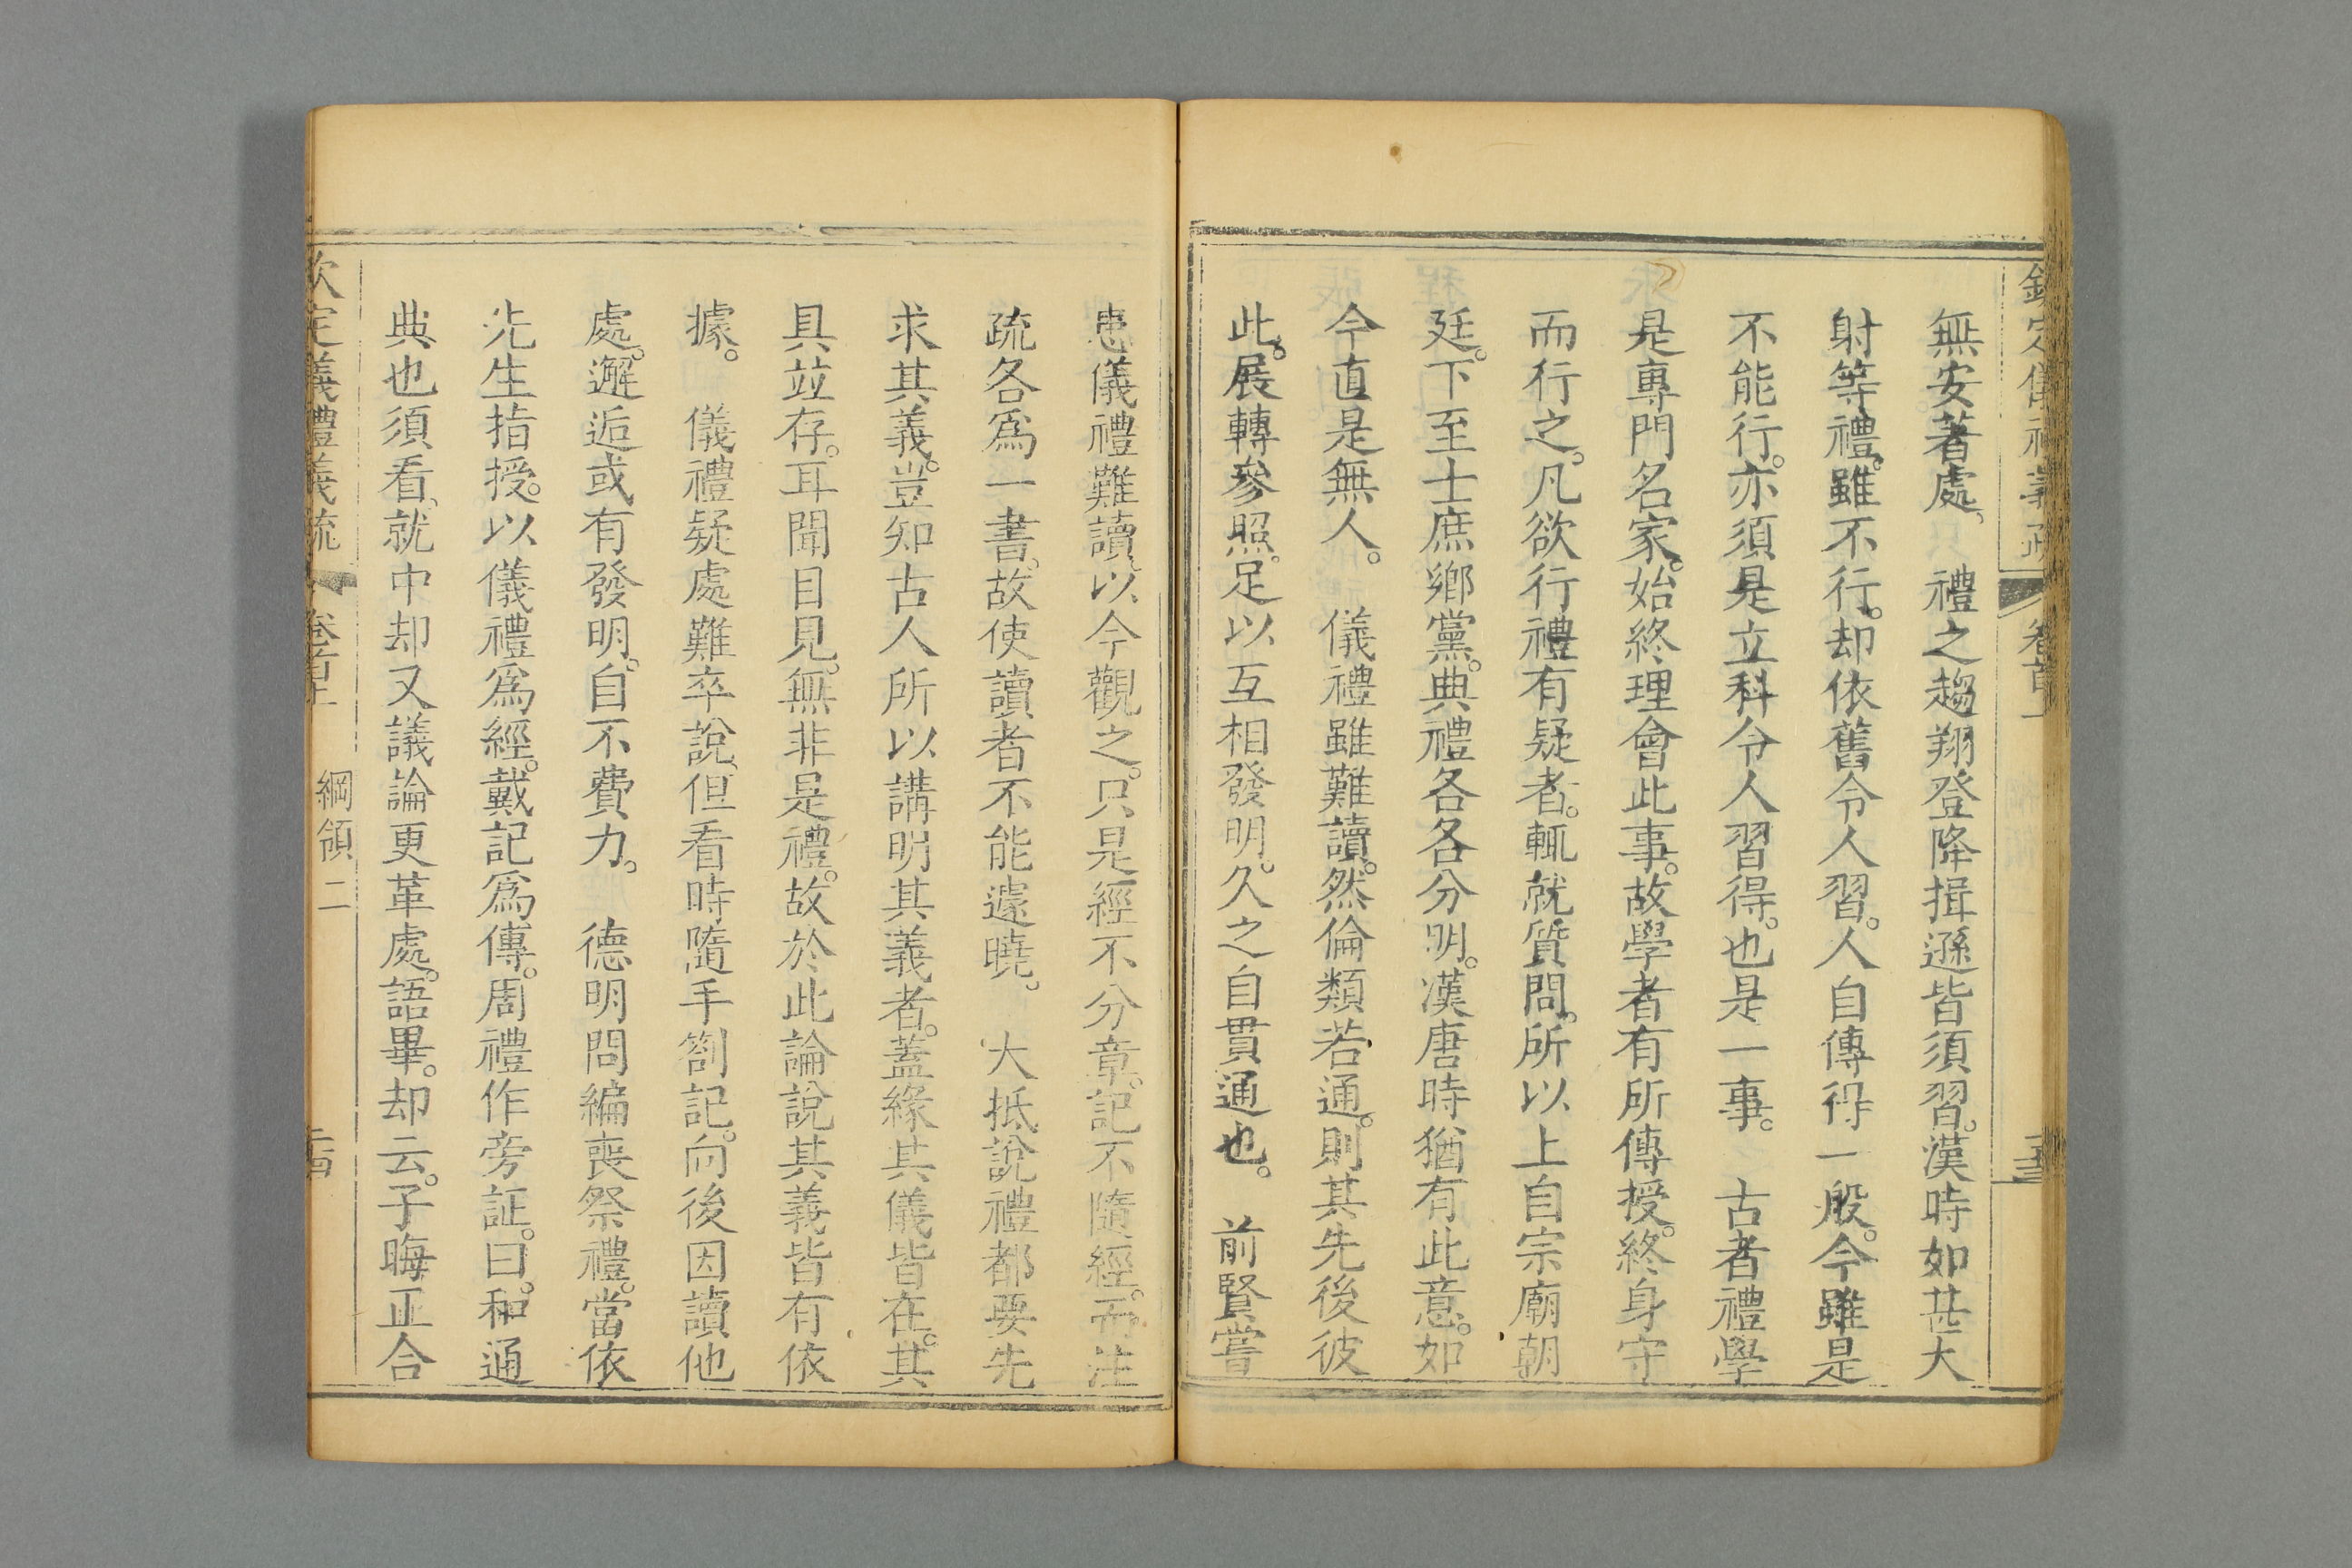 無安著處、　禮之趨翔登降揖遜皆須習。漢時如甚大
射等禮。雖不行。却依舊令人習。人自傳得一般。今雖是
不能行。亦須是立科令人習得。也是一事。　古者禮學
是專門名家。始終理會此事。故學者有所傳授。終身守
而行之。凡欲行禮有疑者。輒就質問。所以上自宗廟朝
廷。下至士庶鄉黨。典禮各各分明。漢唐時猶有此意。如
今直是無人。　儀禮雖難讀。然倫類若通。則其先後彼
此。展轉參照。足以互相發明。久之自貫通也。　前賢嘗
患儀禮難讀。以今觀之。只是經不分章。記不隨經。而注
疏各爲一書。故使讀者不能遽曉。　大抵說禮都要先
求其義。豈知古人所以講明其義者。蓋緣其儀皆在。其
具竝存。耳聞目見。無非是禮。故於此論說其義皆有依
據。　儀禮疑處難卒說、但看時隨手劄記。向後因讀他
處。邂逅或有發明。自不費力。　德明問編喪祭禮。當依
先生指授。以儀禮爲經。戴記爲傳。周禮作旁証。曰。和通
典也須看、就中却又議論更革處。語畢。却云。子晦正合
欽定儀禮義疏　卷首上　綱領二